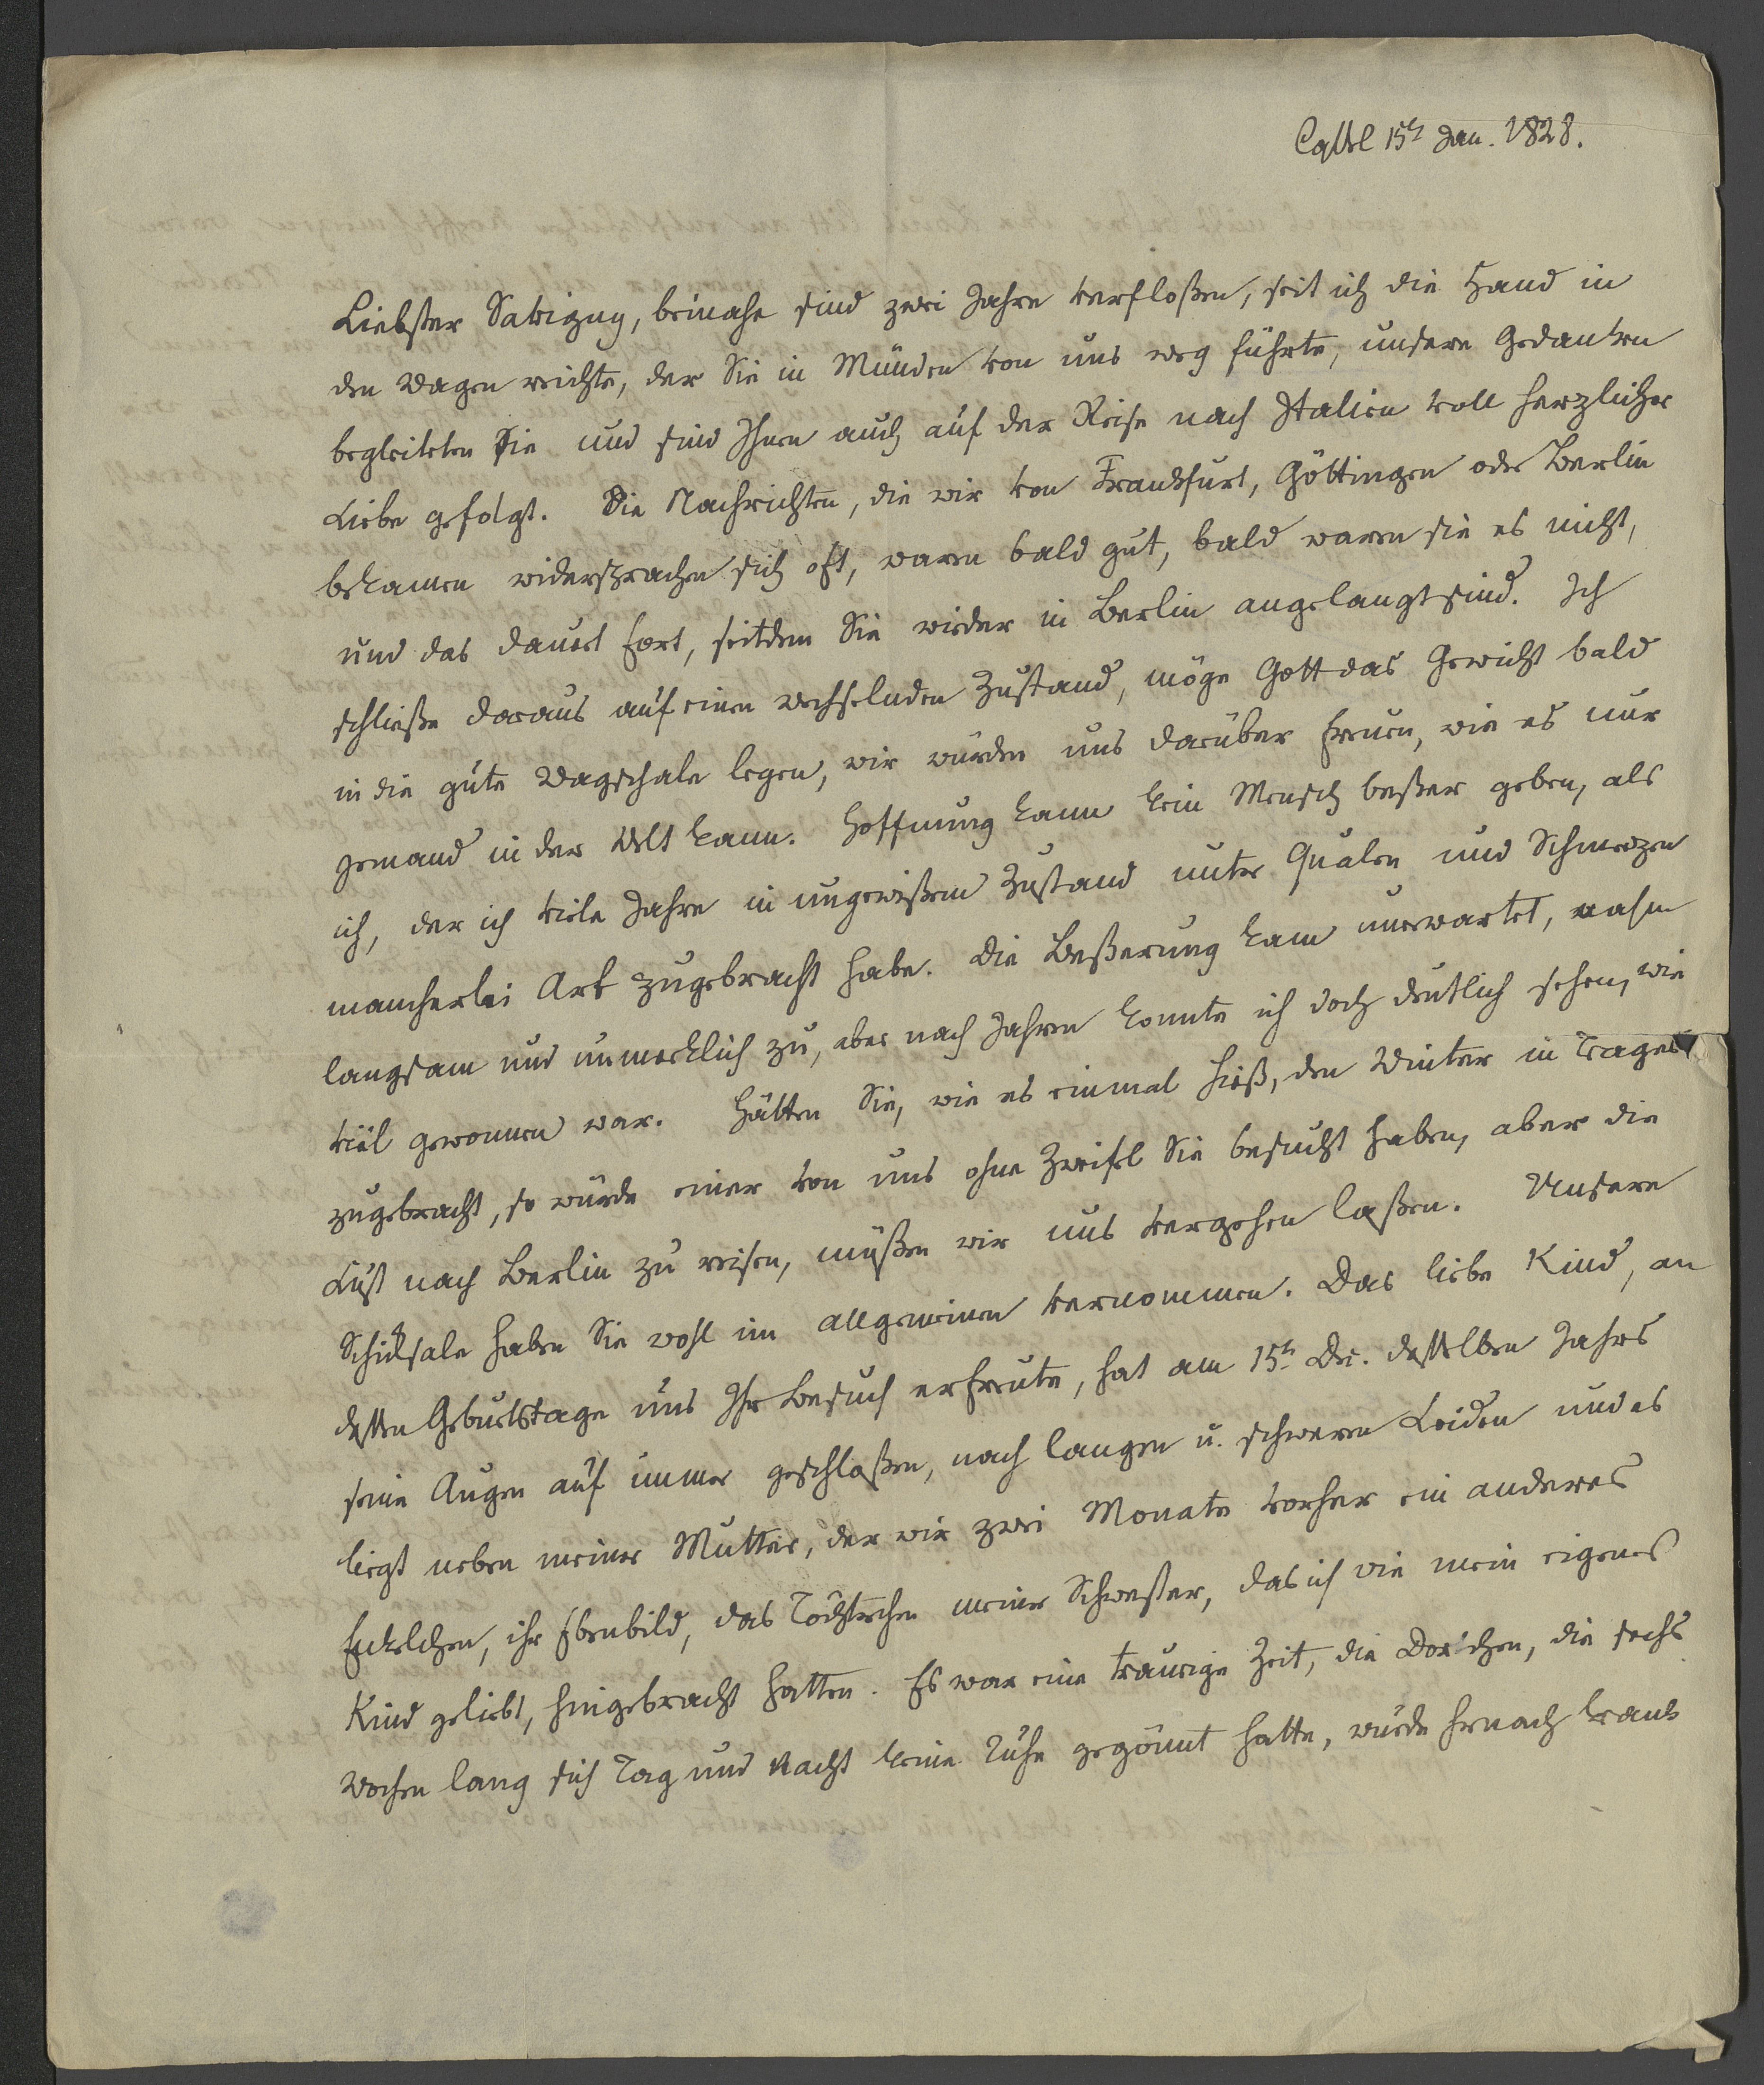 Cassel 15t Jan. 1828.
Liebster Savigny, beinahe sind zwei Jahre verfloßen, seit ich die Hand in
den Wagen reichte, der Sie in Münden von uns weg führte, unsere Gedanken
begleiteten Sie und sind Ihnen auch auf der Reise nach Italien voll herzlicher
Liebe gefolgt. Die Nachrichten, die wir von Frankfurt, Göttingen oder Berlin
bekamen widersprachen sich oft, waren bald gut, bald waren sie es nicht,
und das dauert fort, seitdem Sie wieder in Berlin angelangt sind. Ich
schließe daraus auf einen wechselnden Zustand, möge Gott das Gewicht bald
in die gute Wagschale legen, wir würden uns darüber freuen, wie es nur
jemand in der Welt kann. Hoffnung kann kein Mensch beßer geben, als
ich, der ich viele Jahre in ungewißem Zustand unter Qualen und Schmerzen
mancherlei Art zugebracht habe. Die Beßerung kam unerwartet, nahm
langsam und unmerklich zu, aber nach Jahren konnte ich doch deutlich sehen, wie
viel gewonnen war. Hätten Sie, wie es einmal hieß, den Winter in Trages
zugebracht, so würde einer von uns ohne Zweifel Sie besucht haben, aber die
Lust nach Berlin zu reisen, müßen wir uns vergehen laßen. Unsere
Schicksale haben Sie wohl im allgemeinen vernommen. Das liebe Kind, an
dessen Geburtstage uns Ihr Besuch erfreute, hat am 15t Dec. desselben Jahrs
seine Augen auf immer geschloßen, nach langen u. schweren Leiden und es
liegt neben meiner Mutter, der wir zwei Monate vorher ein anderes
Enkelchen, ihr Ebenbild, das Töchterchen meiner Schwester, das ich wie mein eigenes
Kind geliebt, hingebracht hatten. Es war eine traurige Zeit, die Dortchen, die sechs
Wochen lang sich Tag und Nacht keine Ruhe gegönnt hatte, wurde hernach krank